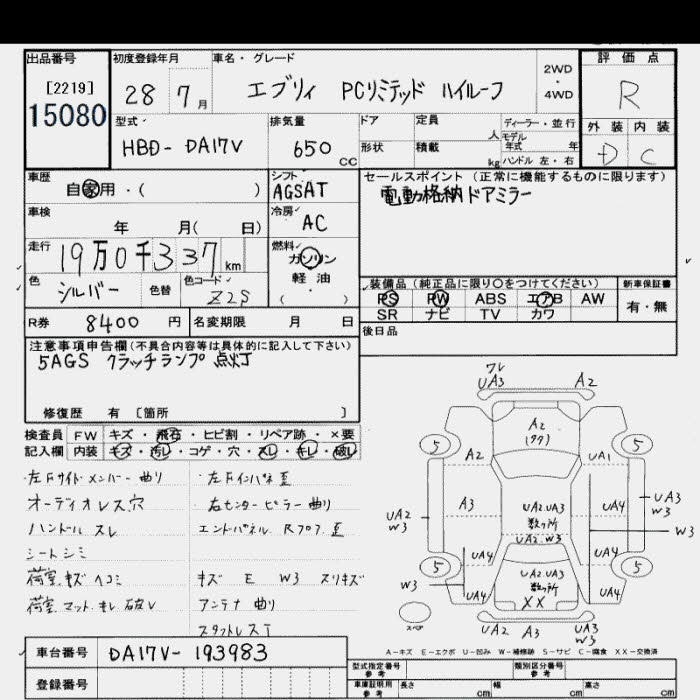 出品番号
[2219]
15080
初度登録年月
28 7月
車名・グレード
エブリィ PCリミテッド ハイルーフ
2WD
・
4WD
評価点
R
外装 内装
D C
型式
HBD- DA17V
排気量
650 CC
ドア
形状
定員
人
積載
kg
ディーラー・並行
モデル
年式 年
ハンドル 左・右
車歴
自家用・( )
シフト
AGSAT
セールスポイント (正常に機能するものに限ります)
電動格納ドアミラー
車検
年 月( 日)
冷房
AC
走行
19万0千337km
燃料
ガソリン
軽油
( )
色
シルバー
色替
色コード
Z2S
装備品 (純正品に限り○をつけてください)
PS PW ABS エアB AW
SR ナビ TV カワ
新車保証書
有・無
R券 8400 円
名変期限 月 日
後日品
注意事項申告欄(不具合内容等は具体的に記入して下さい)
5AGS クラッチランプ 点灯
修復歴 有 〔箇所 〕
検査員
記入欄
FW キズ・飛石・ヒビ割・リペア跡・×要
内装 キズ・汚レ・コゲ・穴・スレ・キレ・破レ
・左Fサイドメンバー 曲り
・左Fインパネ 歪
オーディオレス穴
・右センターピラー 曲り
ハンドル スレ
エンドパネル Rフロア 歪
シートシミ
荷室 キズ ヘコミ
キズ E W3 スリキズ
荷室マット キレ 破レ
アンテナ 曲り
スタットレスT
ワレ
UA3 A2
A2
(ククリ)
5 5
A2 UA1
A3
UA2.UA3
数ヶ所
UA2.W3
UA4
UA2
W3
UA3
W3
W3
UA4 UA4
5 5
UA2.UA3
数ヶ所
XX
UA4 UA4
W3
スペア
UA2 A3 UA3
A-キズ E-エクボ U-凹み W-補修跡 S-サビ C-腐食 XX-交換済
車台番号 DA17V- 193983
登録番号
型式指定番号
参考
類別区分番号
参考
車庫証明用
参考
長さ cm 幅 cm 高さ cm